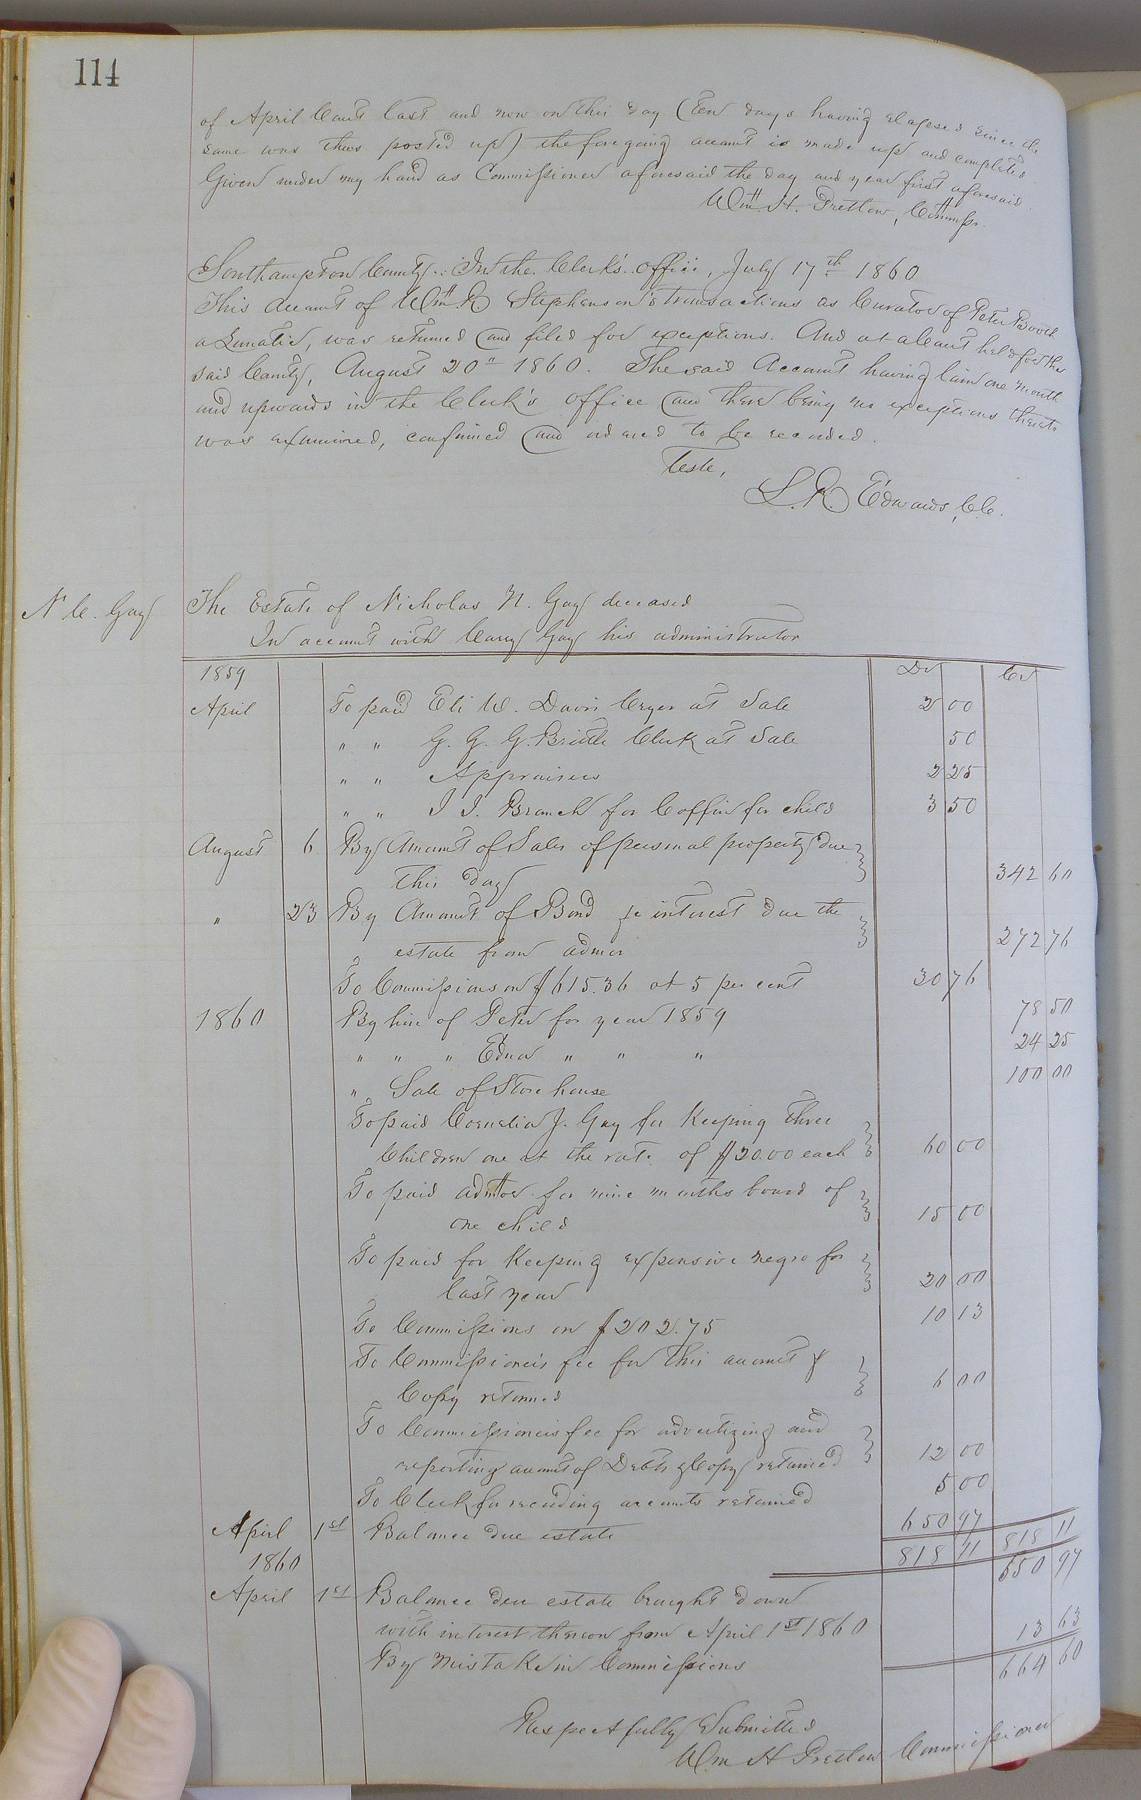 114
of April Court last and now on this day (Ten days having elapsed since the
same was thus posted up) the foregoing account is made up and completed.
Given under my hand as Commissioner aforesaid the day and year first aforesaid.
Wm. H. Pretlow, Commsr.
Southampton County: In the Clerk's office, July 17th 1860
This account of Wm. R Stephenson's transactions as Curator of Peter Booth
a Lunatic, was returned and filed for exceptions. And at a Court held for the
said County, August 20th 1860. The said Account having lain one month
and upwards in the Clerk's office and there being no exceptions thereto
was examined, confirmed and ordered to be recorded.
Teste,
L. R. Edwards, C.C.
N C. Gay
The Estate of Nicholas N. Gay deceased
In account with Carey Gay his administrator
1859 Dr Cr
April To paid Eli W. Davis Cryer at Sale 2 00
" " G. G. G. Brittle Clerk at Sale 50
" " Appraisers 2 25
" " J. J. Branch for Coffin for child 3 50
August 6 By Amount of Sales of personal property due
this day 342 60
" 23 By Amount of Bond & interest due the
estate from admor 272 76
To Commissions on $615.36 at 5 per cent 30 76
1860 By hire of Peter for year 1859 78 50
" " " Edna " " " 24 25
" Sale of Store house 100 00
To paid Cornelia J. Gay for Keeping Three
Children one at the rate of $20.00 each 60 00
To paid admtor for nine months board of
one child 15 00
To paid for Keeping expensive negro for
last year 20 00
To Commissions on $202.75 10 13
To Commissioner's fee for this account &
Copy returned 6 00
To Commissioners fee for advertizing and
reporting account of Debts & Copy returned 12 00
To Clerk for recording accounts returned 5 00
April 1st Balance due estate 650 97
818 11 818 11
1860 650 97
April 1st Balance due estate brought down
with interest thereon from April 1st 1860
By mistake in Commissions 13 63
664 60
Respectfully Submitted
Wm H Pretlow Commissioner